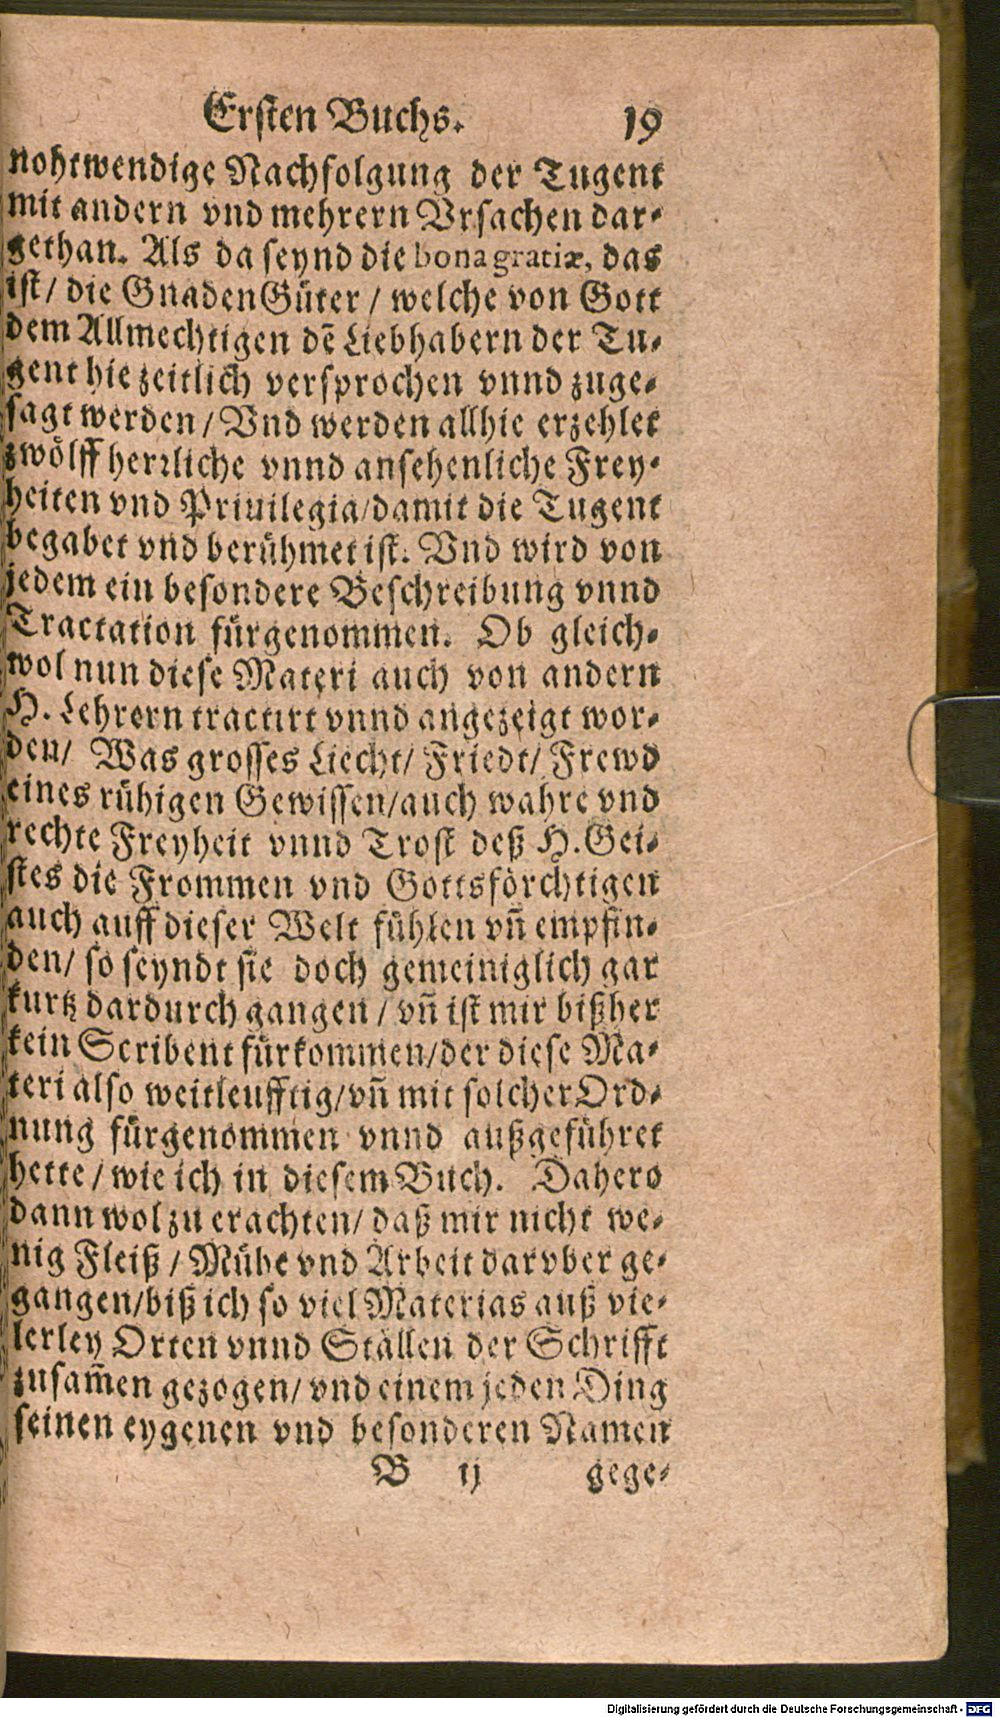 Ersten Buchs. 19
nohtwendige Nachfolgung der Tugent
mit andern vnd mehrern Vrsachen dar-
gethan. Als da seynd die bona gratiæ, das
ist/ die GnadenGüter / welche von Gott
dem Allmechtigen dẽ Liebhabern der Tu-
gent hie zeitlich versprochen vnnd zuge-
sagt werden / Vnd werden allhie erzehlet
zwölff herrliche vnnd ansehenliche Frey-
heiten vnd Priuilegia/damit die Tugent
begabet vnd berühmet ist. Vnd wird von
jedem ein besondere Beschreibung vnnd
Tractation fürgenommen. Ob gleich-
wol nun diese Materi auch von andern
H. Lehrern tractirt vnnd angezeigt wor-
den/ Was grosses Liecht/ Friedt/ Frewd
eines rühigen Gewissen/auch wahre vnd
rechte Freyheit vnnd Trost deß H. Gei-
stes die Frommen vnd Gottsförchtigen
auch auff dieser Welt fühlen vñ empfin-
den/ so seyndt sie doch gemeiniglich gar
kurtz dardurch gangen / vñ ist mir bißher
kein Scribent fürkommen/der diese Ma-
teri also weitleufftig/vñ mit solcher Ord-
nung fürgenommen vnnd außgeführet
hette / wie ich in diesem Buch. Dahero
dann wol zu erachten/ daß mir nicht we-
nig Fleiß / Mühe vnd Arbeit darvber ge-
gangen/biß ich so viel Materias auß vie-
lerley Orten vnnd Ställen der Schrifft
zusam̃en gezogen/ vnd einem jeden Ding
seinen eygenen vnd besonderen Namen
B ij gege-
Digitalisierung gefördert durch die Deutsche Forschungsgemeinschaft - DFG